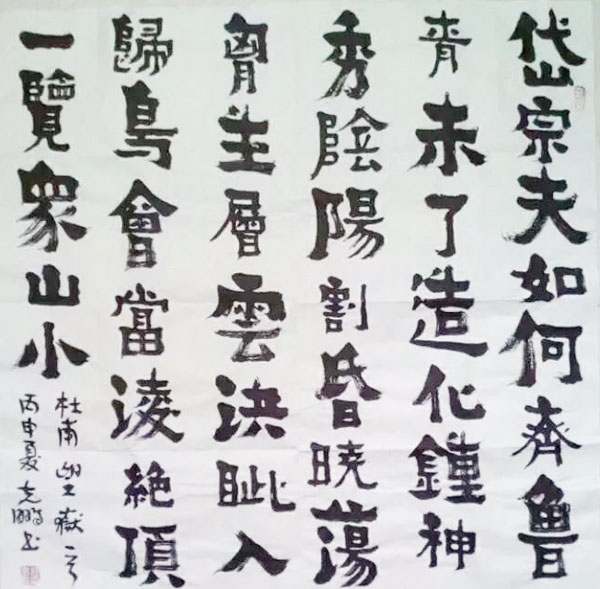 岱宗夫如何齊魯
青未了造化鍾神
秀陰陽割昏曉蕩
胷生層雲決眦入
歸鳥會當淩絶頂
一覽眾山小
杜甫望嶽
丙申夏克鵬書